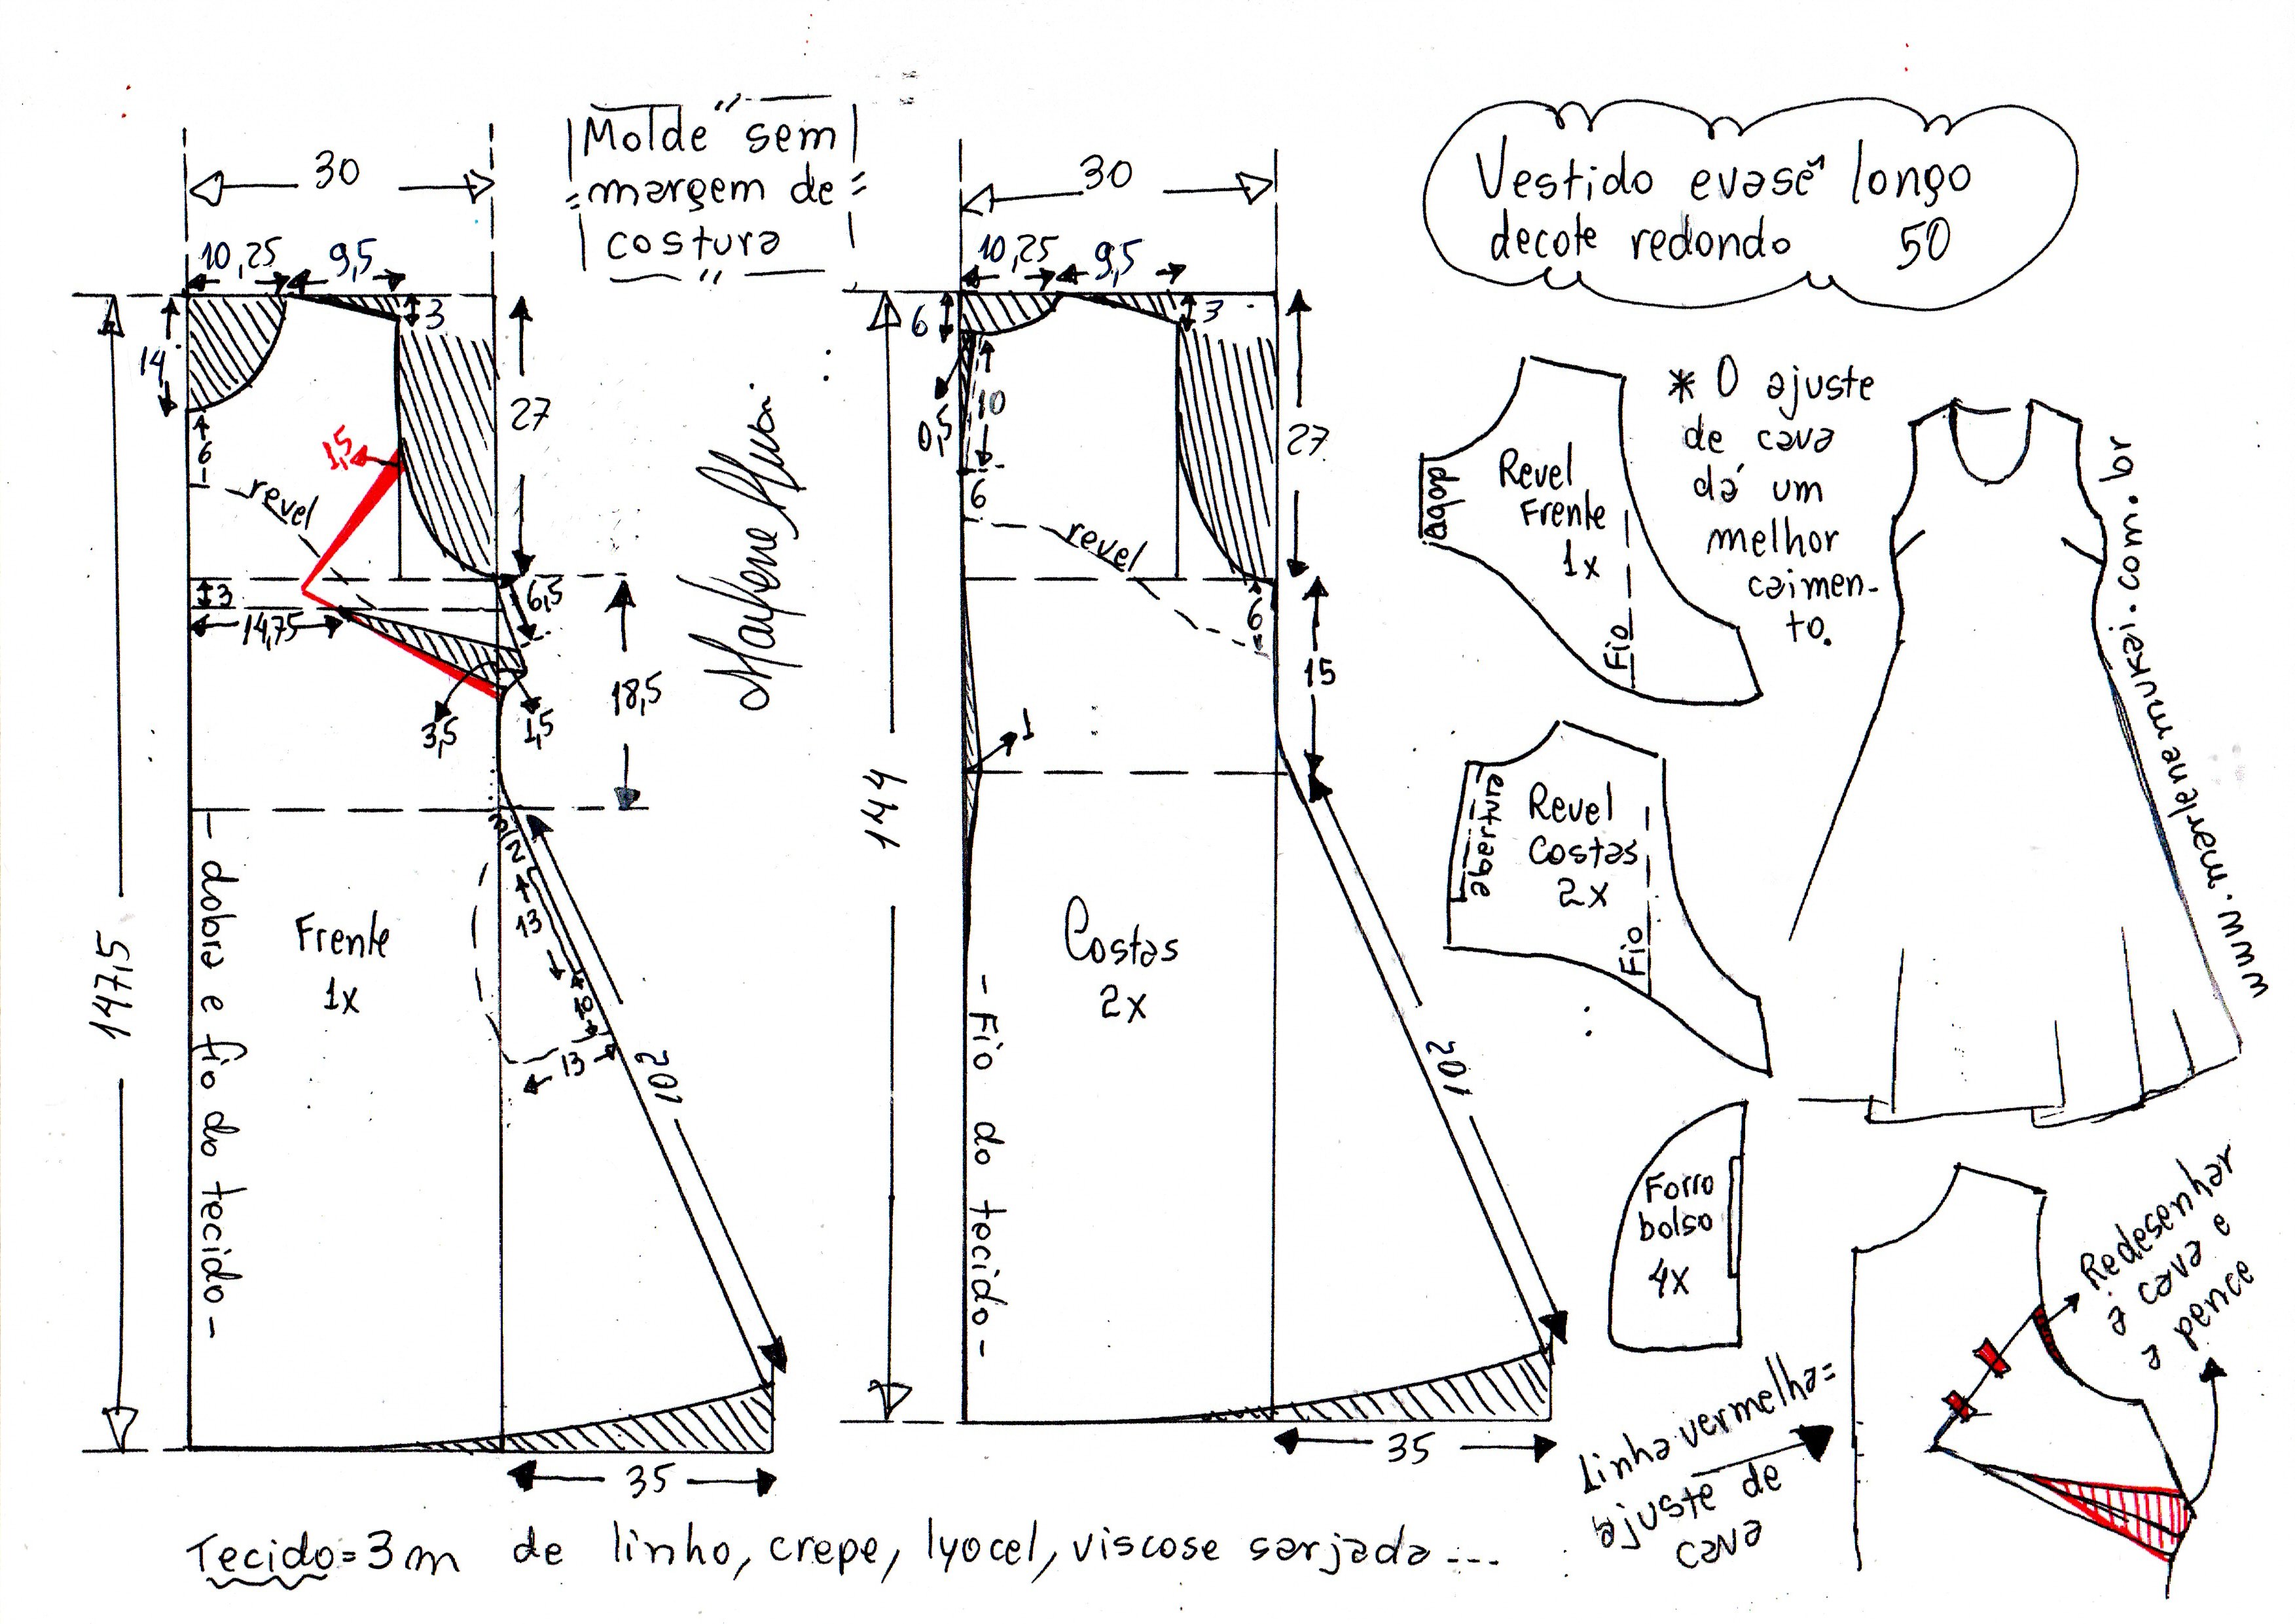 30
10,25
9,5
3
14
27
6
1,5
revel
3
14,75
6,5
3,5
1,5
18,5
147,5
3
2
13
10
13
102
35
- dobra e fio do tecido -
Frente
1x
Molde sem
margem de
costura
30
10,25
9,5
6
3
0,5
10
6
27
revel
6
15
1
144
Costas
2x
- Fio do tecido -
102
35
Vestido evasê longo
decote redondo 50
Revel
Frente
1x
dobra
Fio
* O ajuste
de cava
dá um
melhor
caimen-
to.
Revel
Costas
2x
abertura
Fio
Forro
bolso
4x
www.marlenemukai.com.br
Redesenhar
a cava e
a pence
Linha vermelha=
ajuste de
cava
Tecido=3m de linho, crepe, lyocel, viscose sarjada...